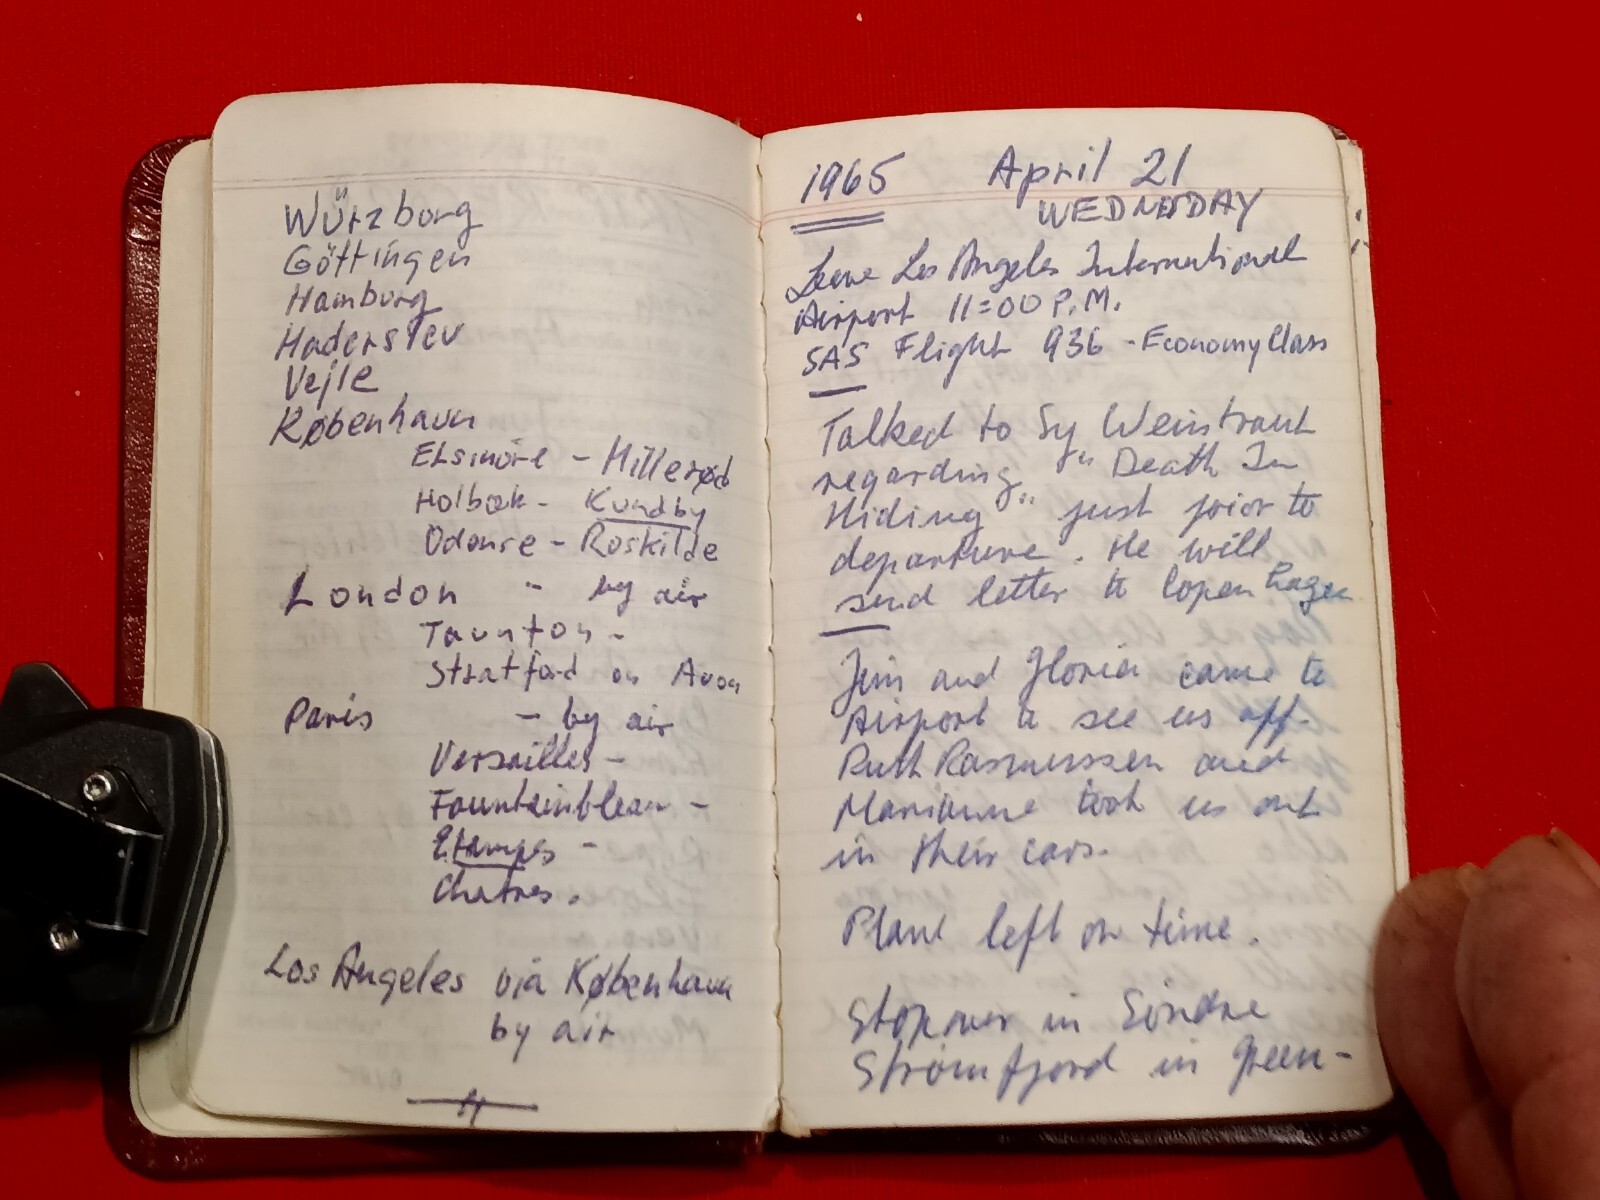 Würzburg
Göttingen
Hamburg
Haderslev
Vejle
København
Elsinore - Hillerød
Holbæk - Kundby
Odense - Roskilde
London - by air
Taunton -
Stratford on Avon
Paris - by air
Versailles -
Fountainbleau -
Etampes -
Chatres.
Los Angeles via København
by air
1965 April 21
WEDNESDAY
Leave Los Angeles International
Airport 11:00 P.M.
SAS Flight 936 - Economy Class
Talked to Sy Weintraub
regarding "Death In
Hiding" just prior to
departure. He will
send letter to Copenhagen
Jim and Gloria came to
Airport to see us off.
Ruth Rasmussen and
Marianne took us out
in their cars.
Plane left on time.
Stopover in Söndre
Strömfjord in Green-